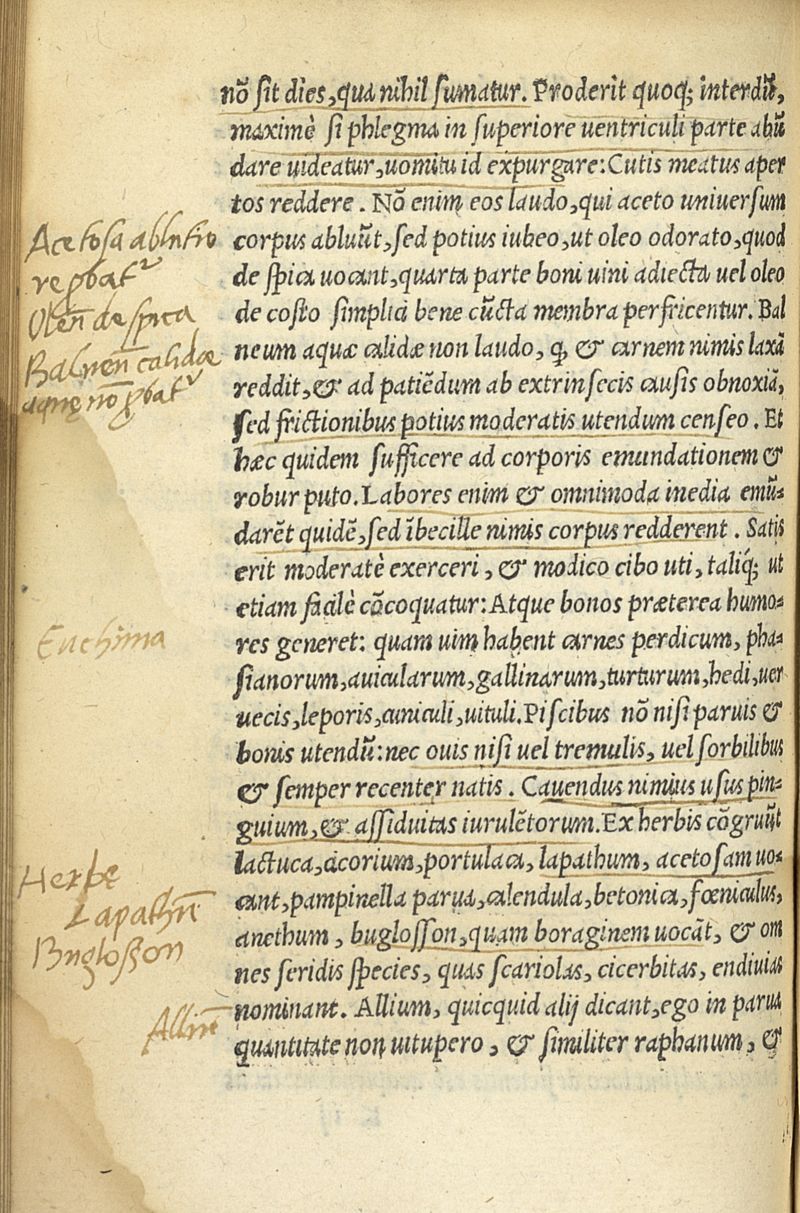 nõ sit dies, qua nihil sumatur. Proderit quoq; interdũ,
maximè si phlegma in superiore uentriculi parte abũ
dare uideatur, uomitu id expurgare: Cutis meatus aper
tos reddere. Nõ enim eos laudo, qui aceto uniuersum
corpus abluũt, sed potius iubeo, ut oleo odorato, quod
de spica uocant, quarta parte boni uini adiecta uel oleo
de costo simplici bene cũcta membra perfricentur. Bal
neum aquæ calidæ non laudo, q, & carnem nimis laxã
reddit, & ad patiẽdum ab extrinsecis causis obnoxiã,
sed frictionibus potius moderatis utendum censeo. Et
hæc quidem sufficere ad corporis emundationem &
robur puto. Labores enim & omnimoda inedia emũ-
darẽt quidẽ, sed ĩbecille nimis corpus redderent. Satis
erit moderatè exerceri, & modico cibo uti, taliq́; ut
etiam facilè cõcoquatur: Atque bonos præterea humo-
res generet: quam uim habent carnes perdicum, pha-
sianorum, auicularum, gallinarum, turturum, hedi, uer
uecis, leporis, cuniculi, uituli. Piscibus nõ nisi paruis &
bonis utendũ: nec ouis nisi uel tremulis, uel sorbilibus
& semper recenter natis. Cauendus nimius usus pin-
guium, & assiduitas iurulẽtorum. Ex herbis cõgruũt
lactuca, cicorium, portulaca, lapathum, acetosam uo-
cant, pampinella parua, calendula, betonica, fœniculus,
anethum, buglosson, quam boraginem uocãt, & om
nes seridis species, quas scariolas, cicerbitas, endiuias
nominant. Allium, quicquid alij dicant, ego in parua
quantitate non uitupero, & similiter raphanum, &
Acetosa
Oleũ de spica
Balneũ calidæ
aquę nõ
Euchima
Herbę
Lapathũ
Buglosson
Alliũ